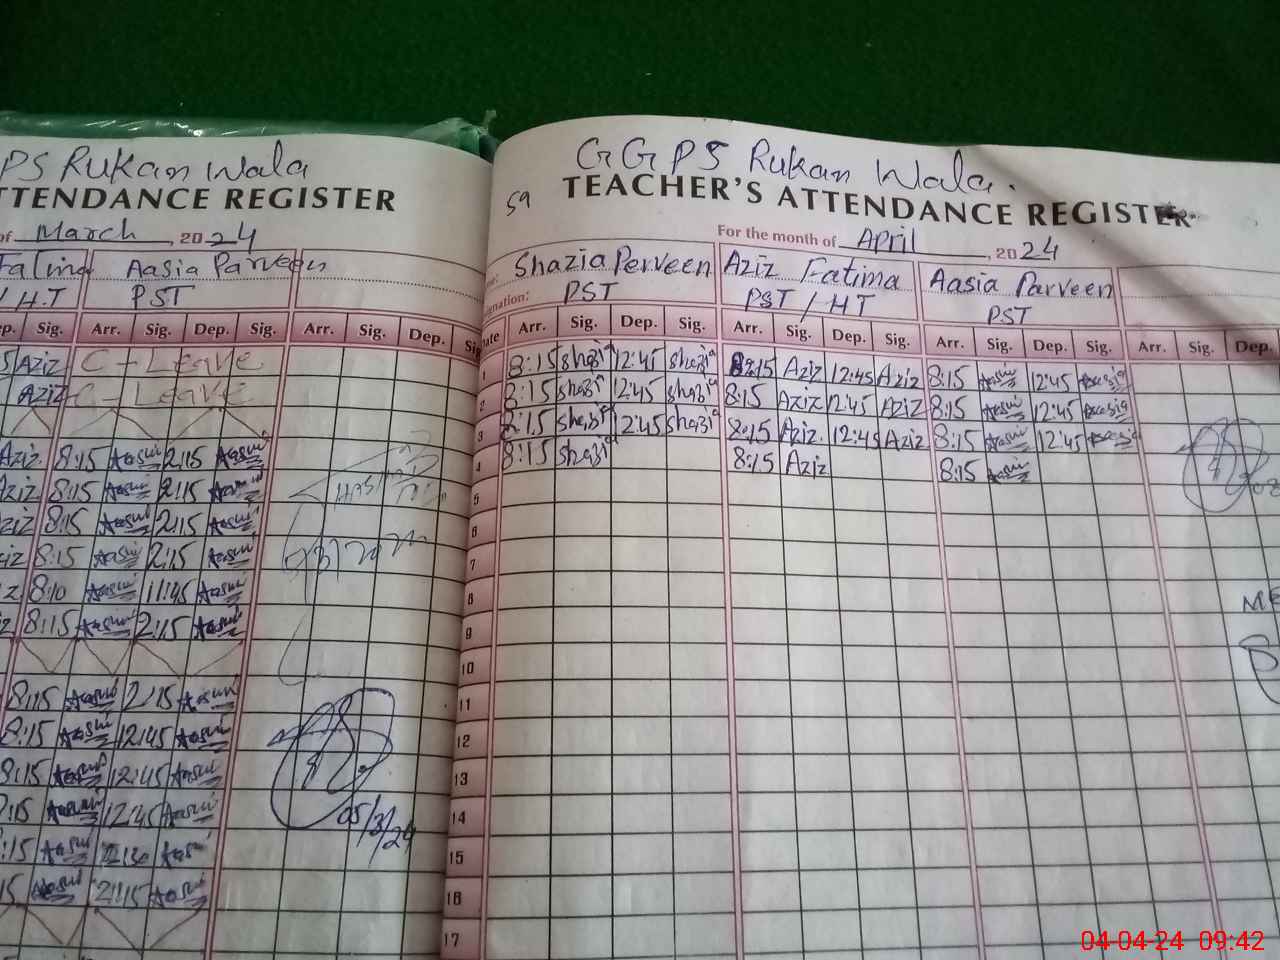 PS Rukan Wala
TTENDANCE REGISTER
of March, 2024
Fatima Aasia Parveen
/ H.T PST
ep. Sig. Arr. Sig. Dep. Sig. Arr. Sig. Dep. Sig
Aziz C - Leave
Aziz C - Leave
Aziz 8:15 Aasia 2:15 Aasia
Aziz 8:15 Aasia 2:15 Aasia
ziz 8:15 Aasia 2:15 Aasia
ziz 8:15 Aasia 2:15 Aasia
z 8:10 Aasia 11:45 Aasia
iz 8:15 Aasia 2:15 Aasia
8:15 Aasia 2:15 Aasia
8:15 Aasia 12:45 Aasia
8:15 Aasia 12:45 Aasia
:15 Aasia 12:45 Aasia
:15 Aasia Aasia
15 Aasia 2:15 Aasia
05/3/24
GGPS Rukan Wala.
59 TEACHER'S ATTENDANCE REGISTER
For the month of April, 2024
Shazia Perveen Aziz Fatima Aasia Parveen
gnation: PST PST / HT PST
Date Arr. Sig. Dep. Sig. Arr. Sig. Dep. Sig. Arr. Sig. Dep. Sig. Arr. Sig. Dep.
1 8:15 shazia 12:45 shazia 8:15 Aziz 12:45 Aziz 8:15 Aasia 12:45 Aasia
2 8:15 shazia 12:45 shazia 8:15 Aziz 12:45 Aziz 8:15 Aasia 12:45 Aasia
3 8:15 shazia 12:45 shazia 8:15 Aziz. 12:45 Aziz 8:15 Aasia 12:45 Aasia
4 8:15 shazia 8:15 Aziz 8:15 Aasia
5
6
7
8
9
10
11
12
13
14
15
16
17
04-04-24 09:42